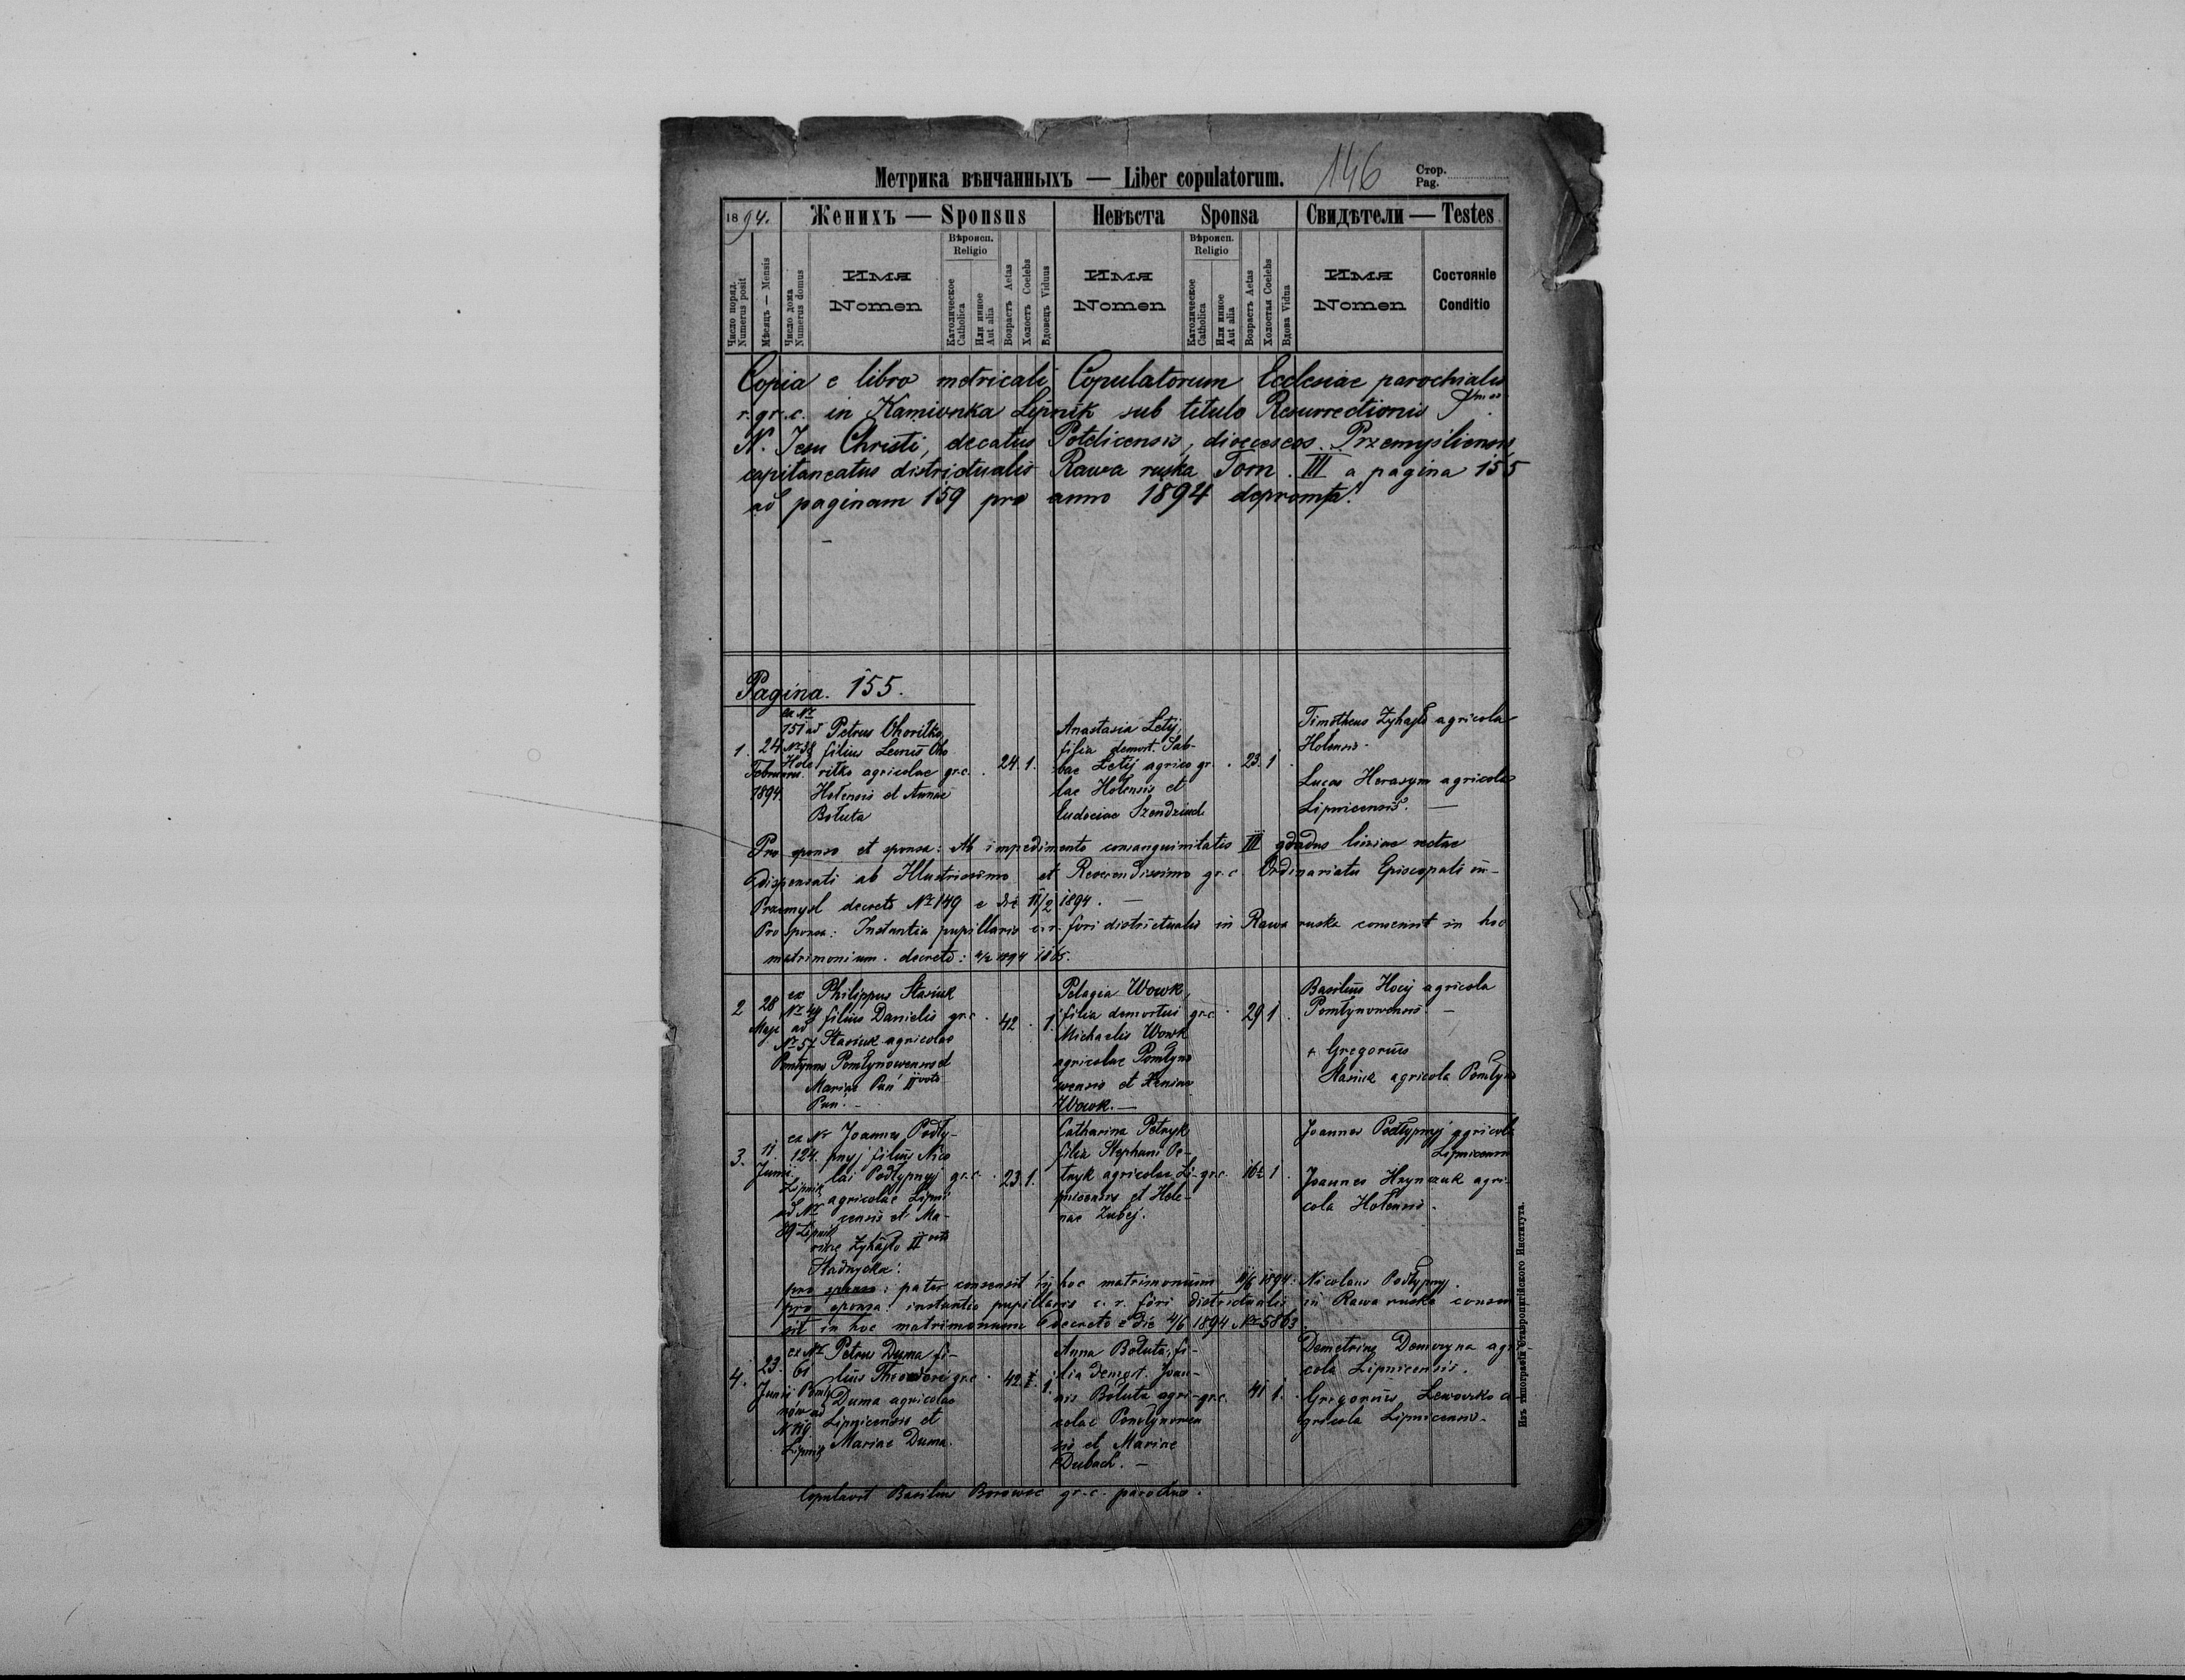 Метрика вѣнчанныхъ — Liber copulatorum.
146
Стор.
Pag.
1894.
Женихъ — Sponsus
Невѣста Sponsa
Свидѣтели — Testes
Число поряд.
Numerus posit
Мѣсяцъ — Mensis
Число дома
Numerus domus
Имя
Nomen
Вѣроисп.
Religio
Католическое
Catholica
Или инное
Aut alia
Возрастъ Aetas
Холостъ Coelebs
Вдовецъ Viduus
Имя
Nomen
Вѣроисп.
Religio
Католическое
Catholica
Или инное
Aut alia
Возрастъ Aetas
Холостая Coelebs
Вдова Vidua
Имя
Nomen
Состояніе
Conditio
Copia e libro metricali Copulatorum Ecclesiae parochialis
r. gr. c. in Kamionka Lipnik sub titulo Resurrectionis
N. Jesu Christi, decatus Potelicensis, dioeceseos Przemysliensis,
capitaneatus districtualis Rawa ruska Tom. III a pagina 155
ad paginam 159 pro anno 1894 depromta.
Pagina. 155.
1.
24
Februarii
1894
ex Nr
151 ad
Nr 38
Hole
Petrus Ohoritko,
filius Leonis Oho
ritko agricolae gr.c.
Hołensis et Annae
Bołuta
24. 1.
Anastasia Letij,
filia demort. Sab-
bae Letij agrico gr.
lae Hołensis et
Eudociae
23. 1
Timotheus Zyhajło agricola
Hołensis.
Lucas Herasym agricola
Lipnicensis. —
Pro sponso et sponsa: Ab impedimento consanguinitatis III gradus liniae rectae
dispensati ab Illustrissimo et Reverendissimo gr. c Ordinariatu Episcopali in
Przemysl decreto Nr 149 e die 11/2 1894. —
Pro sponsa: Instantia pupillaris c. r. fori districtualis in Rawa ruska consensit in hoc
matrimonium. decreto: 1894
2
28
Maji
ex
Nr 49
ad
Nr 57
Philippus Stasiuk
filius Danielis gr.c
Stasiuk agricolae
Pomłynowensis et
Mariae Pun' II voto
Pun'. —
42 . 1.
Pelagia Wowk,
filia demortui gr.c
Michaelis Wowk
agricolae Pomłyno
wensis et Xeniae
Wowk. —
29 1
Basilius Hocij agricola
Pomłynowensis —
+ Gregorius
Stasiuk agricola Pomłyno
3.
11.
Junii
ex Nr
124.
Lipnik
ad Nr
89 Lipnik
Joannes Podły-
pnyj filius Nico
lai Podłypnyj gr.c.
agricolae Lipni
censis et Ma-
riae Zyhajło II voto
Stadnycka.
23. 1.
Catharina Petryk
filia Stephani Pe-
tryk agricolae Li- gr.c.
pnicensis et Hele-
nae Zubej.
16½ 1
Joannes Podłypnyj agricola
Lipnicensis
Joannes Hrynczuk agri-
cola Hołensis.
pro sponso: pater consensit in hoc matrimonium 11/6 1894. Nicolaus Podłypnyj.
pro sponsa: instantia pupillaris c. r. fori districtualis in Rawa ruska consen
sit in hoc matrimonium decreto e die 4/6 1894 Nr 5863.
4.
23.
Junii
ex Nr
61
Pomły
now ad
N 119
Lipnik
Petrus Duma fi-
lius Theodori gr.c
Duma agricolae
Lipnicensis et
Mariae Duma.
42. 1.
Anna Bołuta, fi-
lia demort. Joan-
nis Bołuta agri- gr.c.
colae Pomłynowen
sis et Mariae
Dubach. —
41 1.
Demetrius Demczyna agri-
cola Lipnicensis.
Gregorius Lewosko a
gricola Lipnicensis.
Copulavit Basilius Borowec gr. c. parochus.
Изъ типографіи Ставропигійского Института.